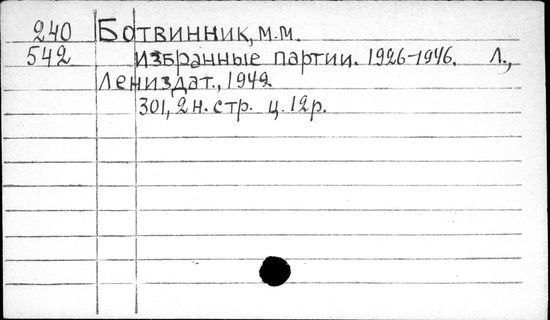 240 Ботвинник, М.М.
542 Избранные партии. 1926-1946. Л.,
Лениздат., 1949.
301, 2 н. стр. ц. 12 р.